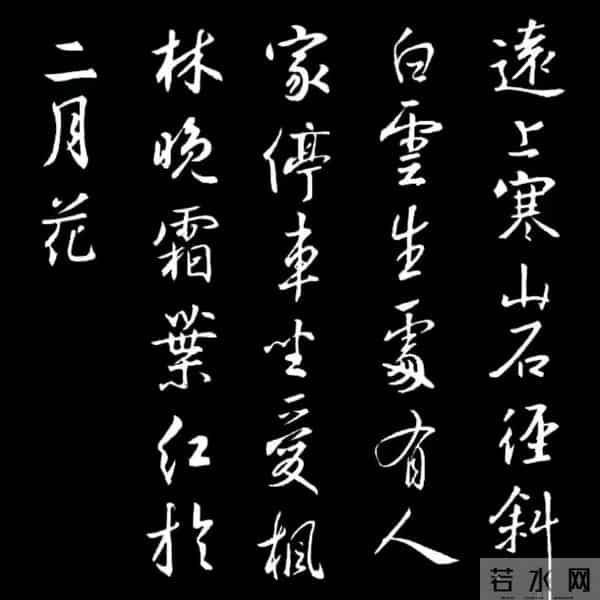 遠上寒山石徑斜
白雲生處有人
家停車坐愛楓
林晚霜葉紅於
二月花
若水网